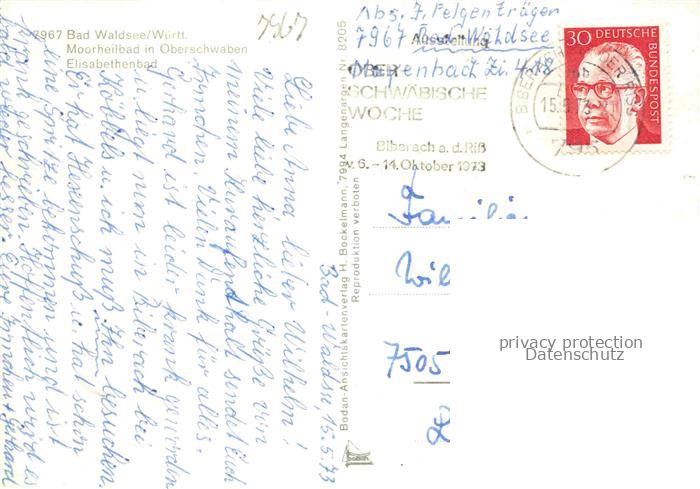 7967 Bad Waldsee/Württ.
Moorheilbad in Oberschwaben
Elisabethenbad
7967
Abs. F. Felgenträger
7967 Bad Waldsee
Zi 418
Ausstellung
OBER
SCHWÄBISCHE
WOCHE
Biberach a. d. Riß
v. 6. – 14. Oktober 1973
30 DEUTSCHE
BUNDESPOST
BIBERACH AN DER RISS
15.5.73
795
Bodan-Ansichtskartenverlag H. Bockelmann, 7994 Langenargen Nr. 8205
Reproduktion verboten
bodan
Bad-Waldsee, 15.5.73
Liebe Anna, lieber Wilhelm!
Viele liebe herzliche Grüße von
meinem Kuraufenthalt sendet Euch
Ännchen. Vielen Dank für alles.
Gerhard ist leider krank geworden
u. liegt nun in Biberach bei
Hobbels u. ich muß Ihn besuchen.
Er hat Hexenschuß u. hat schon
eine Spritze bekommen und ist
krank geschrieben. Hoffentlich wird es
bald wieder besser. Eure Ännchen + Gerhard
Familie
Wil
7505
privacy protection
Datenschutz